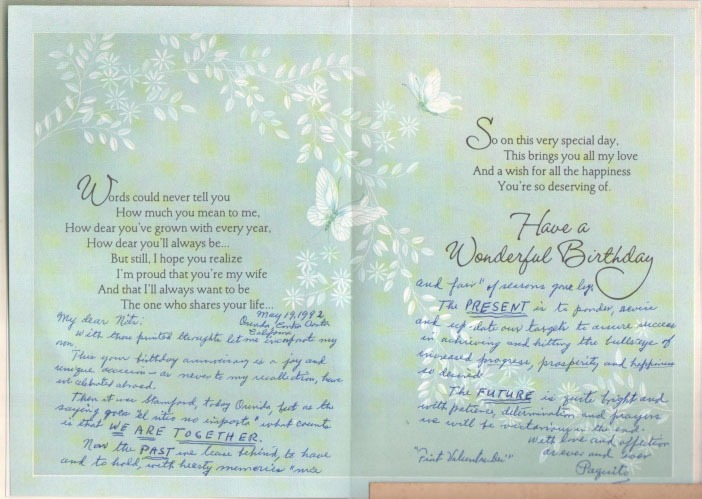 Words could never tell you
How much you mean to me,
How dear you've grown with every year,
How dear you'll always be...
But still, I hope you realize
I'm proud that you're my wife
And that I'll always want to be
The one who shares your life...
May 19, 1992
My dear Niti:
Orinda, Contra Costa
California
With thou printed thoughts let me incorporate my
own.
This your birthday anniversary is a joy and
unique occasion - as never to my recollection, have
we celebrated abroad.
Then it was Stamford, today Orinda, but as the
saying goes "El sitio no importa" what counts
is that WE ARE TOGETHER.
Now the PAST we leave behind, to have
and to hold, with hearty memories "nice
So on this very special day,
This brings you all my love
And a wish for all the happiness
You're so deserving of.
Have a
Wonderful Birthday
and fair" of seasons gone by.
The PRESENT is to ponder, revise
and up date our targets to assure success
in achieving and hitting the bullseye of
increased progress, prosperity and happiness
so desired.
The FUTURE is quite bright and
with patience, determination and prayers
we will be victorious in the end.
With love and affection
as ever and ever
Paquito